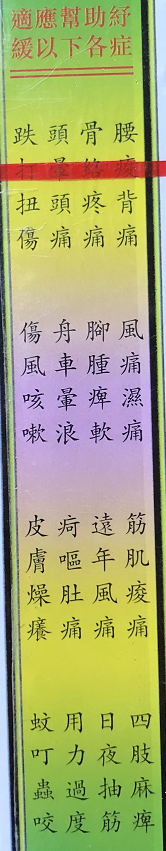 適應幫助紓
緩以下各症
腰痠背痛
骨疼痛
頭暈頭痛
跌打扭傷
風痛濕痛
腳腫痺軟
舟車暈浪
傷風咳嗽
筋肌痠痛
遠年風痛
疴嘔肚痛
皮膚燥癢
四肢麻痺
日夜抽筋
用力過度
蚊叮蟲咬